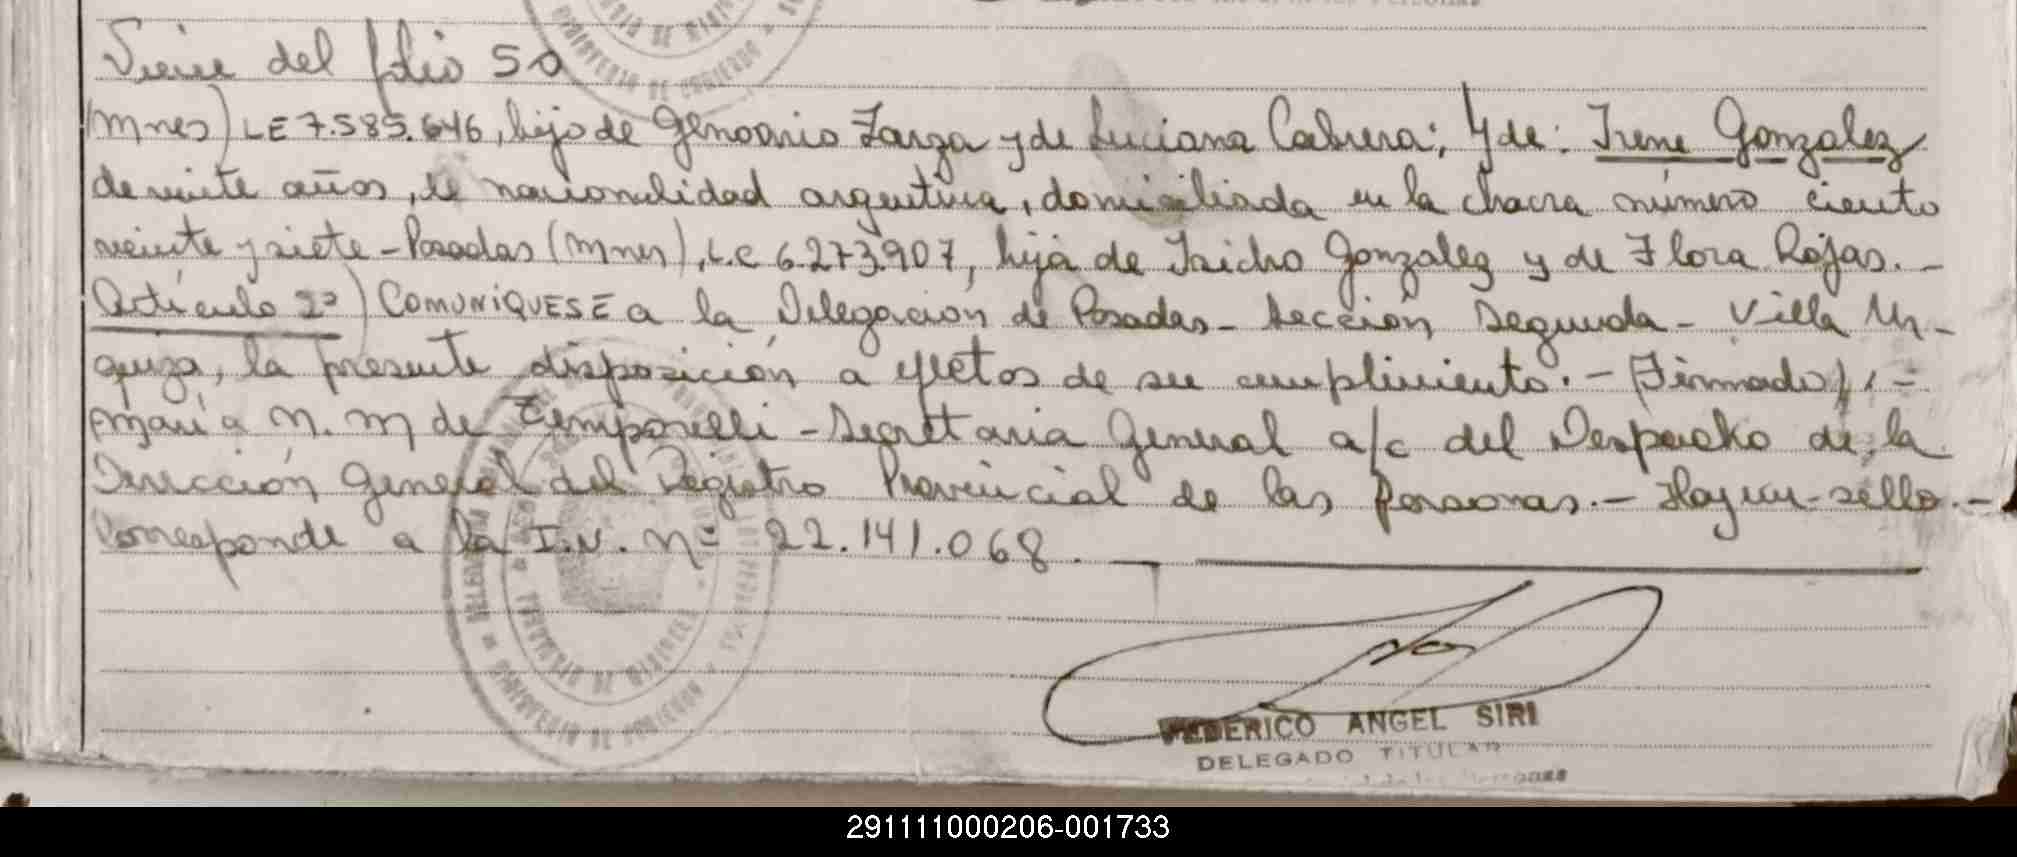 Viene del folio 50
(Mnes) LE 7.585.646, hijo de Genoario Zarza y de Luciana Cabrera; y de: Irene Gonzalez
de veinte años, de nacionalidad argentina, domiciliada en la chacra número ciento
veinte y siete - Posadas (Mnes), L.C 6.273.907, hija de Isidro Gonzalez y de Flora Rojas. -
Artículo 2º) COMUNIQUESE a la Delegación de Posadas - Sección Segunda - Villa Ur-
quiza, la presente disposición a efectos de su cumplimiento. - (Firmado), -
María N. M de Temporelli - Secretaria General a/c del Despacho de la
Dirección General del Registro Provincial de las Personas. - Hay un sello. -
Corresponde a la I.N. Nº 22.141.068.
FEDERICO ANGEL SIRI
DELEGADO TITULAR
291111000206-001733